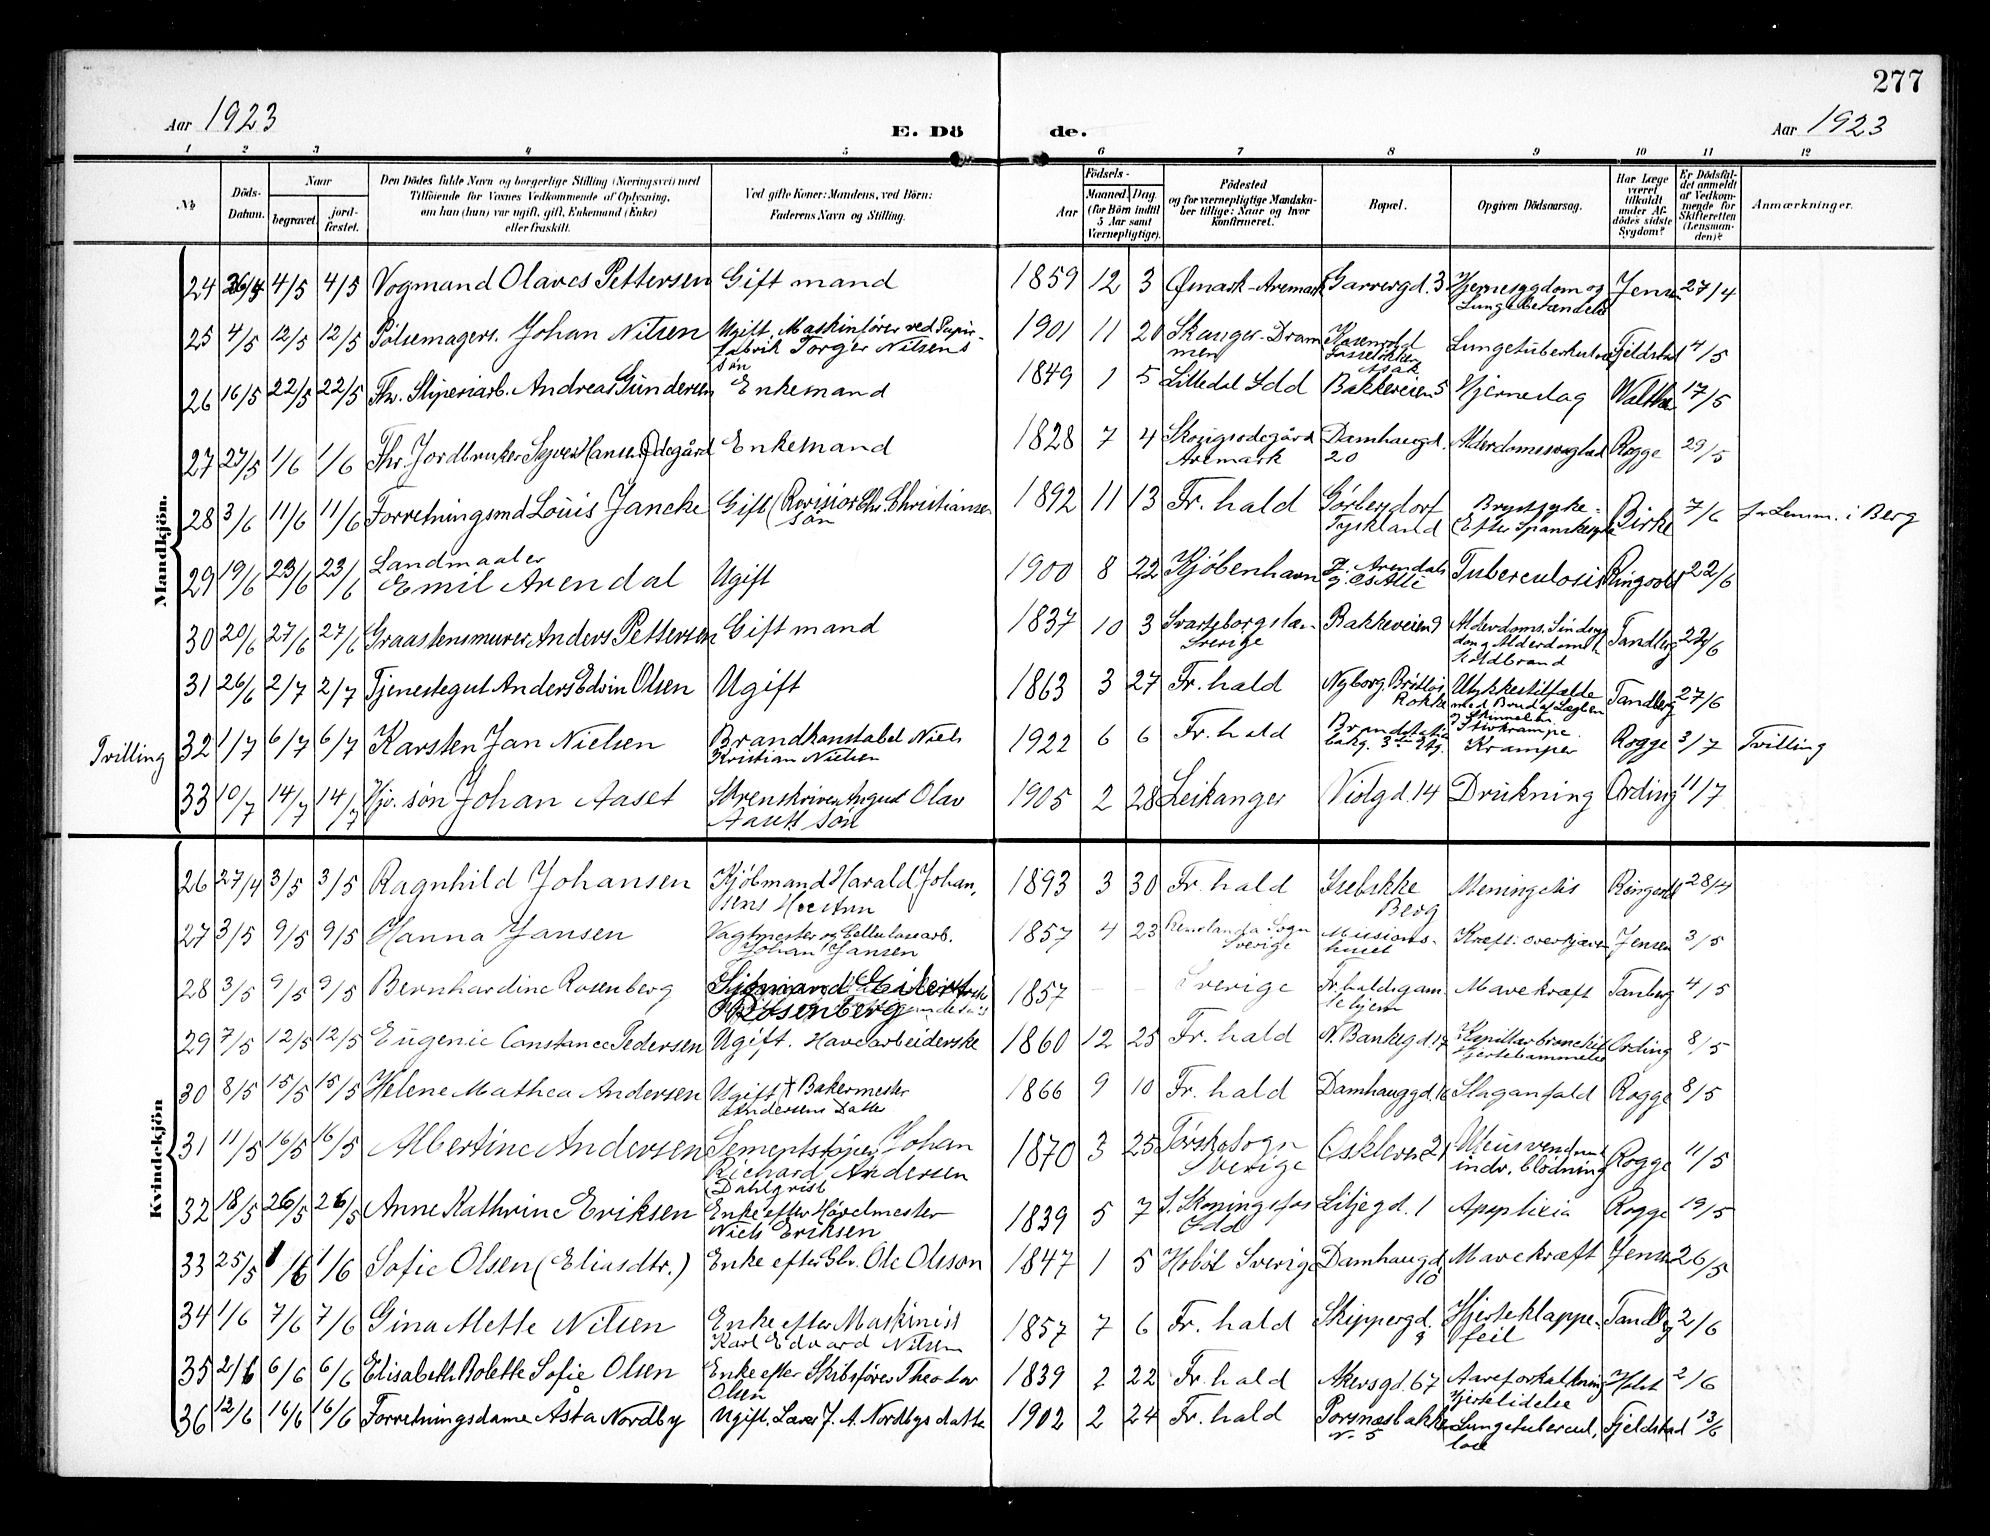 277
Aar 1923
E. Dö
de.
Aar 1923
1 2 3 4 5 6 7 8 9 10 11 12
No
Döds-
Datum.
Naar
begravet.
jord-
fæstet.
Den Dödes fulde Navn og borgerlige Stilling (Næringsvei) med
Tilföiende for Voxnes Vedkommende af Oplysning,
om han (hun) var ugift, gift, Enkemand (Enke)
eller fraskilt.
Ved gifte Koner: Mandens, ved Börn:
Faderens Navn og Stilling.
Födsels-
Aar
Maaned. Dag.
(for Börn indtil
5 Aar samt
Værnepligtige).
Födested
og for værnepligtige Mandska-
ber tillige: Naar og hvor
konfirmeret.
Bopæl.
Opgiven Dödsaarsag.
Har Læge
været
tilkaldt
under Af-
dödes sidste
Sygdom?
Er Dödsfal-
det anmeldt
af Vedkom-
mende for
Skifteretten
(Lensman-
den)?
Anmærkninger.
Mandkjön.
24 26/4 4/5 4/5 Vogmand Olaves Pettersen Gift mand 1859 12 3 Ømark-Aremark Garvergd. 3 Hjernesygdom og Jensen 27/4
Lungebetændelse
25 4/5 12/5 12/5 Pølsemagers. Johan Nilsen Ugift. Maskinfører ved Papir- 1901 11 20 Skanger-Dram Lungetuberkulose Fjeldstad 4/5
fabrik Torger Nilsens men
søn Asak
26 16/5 22/5 22/5 Fhv. Sliperiarb. Andreas Gundersen Enkemand 1849 1 5 Lilledal Idd Bakkeveien 5 Hjerneslag Walther 17/5
27 27/5 1/6 1/6 Fhv. Jordbruker Syver Hansen Ødegård Enkemand 1828 7 4 Damhaugd. Alderdomssvaghed Rogge 29/5
Aremark 20
28 3/6 11/6 11/6 Forretningsmd Louis Jancke Gift (Revisior Chr. Christiansen 1892 11 13 Fr. hald Görbersdorf Brystsyke- Birke 7/6 f Lensm. i Berg
søn Tyskland Efter Spanskesyke
29 19/6 23/6 23/6 Landmaaler
Emil Arendal Ugift 1900 8 22 Kjøbenhavn P. Arendals Tuberculosis Ringvold 22/6
g. Os Allé
30 20/6 27/6 27/6 Graastensmurer Anders Pettersen Gift mand 1837 10 3 Svarteborgs læn- Bakkeveien 9 Tandberg 22/6
Sverige Koldbrand
31 26/6 2/7 2/7 Tjenestegut Anders Edvin Olsen Ugift 1863 3 27 Fr. hald Nyborg. Ulykkestilfælde Tandberg 27/6
Rokke med Brud af Læggen
Tvilling 32 1/7 6/7 6/7 Karsten Jan Nielsen Brandkonstabel Niels 1922 6 6 Fr. hald Brandstatio Stivkrampe. Rogge 3/7 Tvilling
Kristian Nielsen bakg. 3die Etg. Kramper
33 10/7 14/7 14/7 Hjv. søn Johan Aaset Sorenskriver August Olav 1905 2 28 Leikanger Violgd. 14 Drukning Ording 11/7
Aasets søn
Kvindekjön
26 27/4 3/5 3/5 Ragnhild Johansen Kjøbmand Harald Johan, 1893 3 30 Fr. hald Isebakke Meningitis Ringvold 28/4
sens Hustru Berg
27 3/5 9/5 9/5 Hanna Jansen Vagtmester og Cellulosearb. 1857 4 23 Sogn Missions- Kræft i Jensen 3/5
Johan Jansen Sverige huset
28 3/5 9/5 9/5 Bernhardine Rosenberg Sigmand 1857 — — Sverige Fr. halds gam Mavekræft Tanberg 4/5
Rosenberg lehjem
29 7/5 12/5 12/5 Eugenie Constance Pedersen Ugift. Havearbeiderske 1860 12 25 Fr. hald N. Bankegd. 17 Kapillærbronchit Ording 8/5
Hjertelammelse
30 8/5 15/5 15/5 Helene Mathea Andersen Ugift † Bakermester 1866 9 10 Fr. hald Damhauggd. 16 Slaganfald Rogge 8/5
Andersens Datter
31 11/5 16/5 16/5 Albertine Andersen Sementstøper Johan 1870 3 25 Tørskog Sogn Oskleven 21 Rogge 11/5
Richard Andersen Sverige indv. blödning
Dahlqvist
32 18/5 26/5 26/5 Anne Kathrine Eriksen Enke efter Høvelmester 1839 5 7 S. Skoningsfos Liljegd. 1 Apoplexia Rogge 19/5
Niels Eriksen Idd
33 25/5 1/6 1/6 Sofie Olsen (Eliasdtr.) Enke efter Gbr. Ole Olsson 1847 1 5 Hobøl Sverige Damhaugd. Mavekræft Jensen 26/5
10
34 1/6 7/6 7/6 Gina Mette Nilsen Enke efter Maskinist 1857 7 6 Fr. hald Skippergd. Hjerteklappe- Tandbg 2/6
Karl Edvard Nilsen 9 feil
35 2/6 6/6 6/6 Elisabeth Bolette Sofie Olsen Enke efter Skibsfører Theodor 1839 2 22 Fr. hald Akersgd. 67 Aareforkalkning Holst 2/6
Olsen Hjertelidelse
36 12/6 16/6 16/6 Forretningsdame Åsta Nordby Ugift. Lærer J. A. Nordbys datter 1902 2 24 Fr. hald Porsnesbakke Lungetubercul, Fjeldstad 13/6
No 5 lose